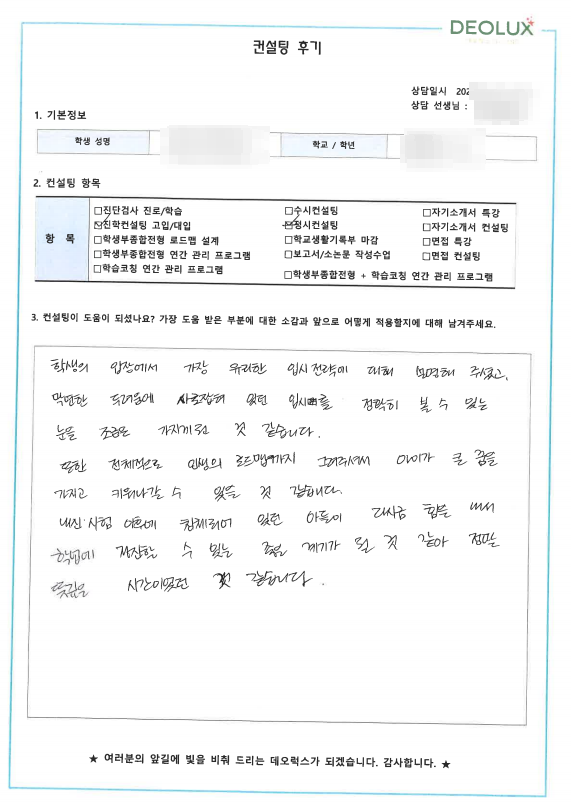 DEOLUX
컨설팅 후기
상담일시 202
상담 선생님 :
1. 기본정보
학생 성명 학교 / 학년
2. 컨설팅 항목
항 목
□진단검사 진로/학습 □수시컨설팅 □자기소개서 특강
☑진학컨설팅 고입/대입 ☑정시컨설팅 □자기소개서 컨설팅
□학생부종합전형 로드맵 설계 □학교생활기록부 마감 □면접 특강
□학생부종합전형 연간 관리 프로그램 □보고서/소논문 작성수업 □면접 컨설팅
□학습코칭 연간 관리 프로그램 □학생부종합전형 + 학습코칭 연간 관리 프로그램
3. 컨설팅이 도움이 되셨나요? 가장 도움 받은 부분에 대한 소감과 앞으로 어떻게 적용할지에 대해 남겨주세요.
학생의 입장에서 가장 유리한 입시전략에 대해 설명해 주셨고,
막연한 두려움에 사로잡혀 있던 입시를 정확히 볼 수 있는
눈을 조금은 가지게 된 것 같습니다.
또한 전체적으로 인생의 로드맵까지 그려주셔서 아이가 큰 꿈을
가지고 키워나갈 수 있을 것 같습니다.
내신시험 이후에 침체되어 있던 아들이 다시금 힘을 내서
학업에 정진할 수 있는 좋은 계기가 된 것 같아 정말
뜻깊은 시간이었던 것 같습니다.
★ 여러분의 앞길에 빛을 비춰 드리는 데오럭스가 되겠습니다. 감사합니다. ★